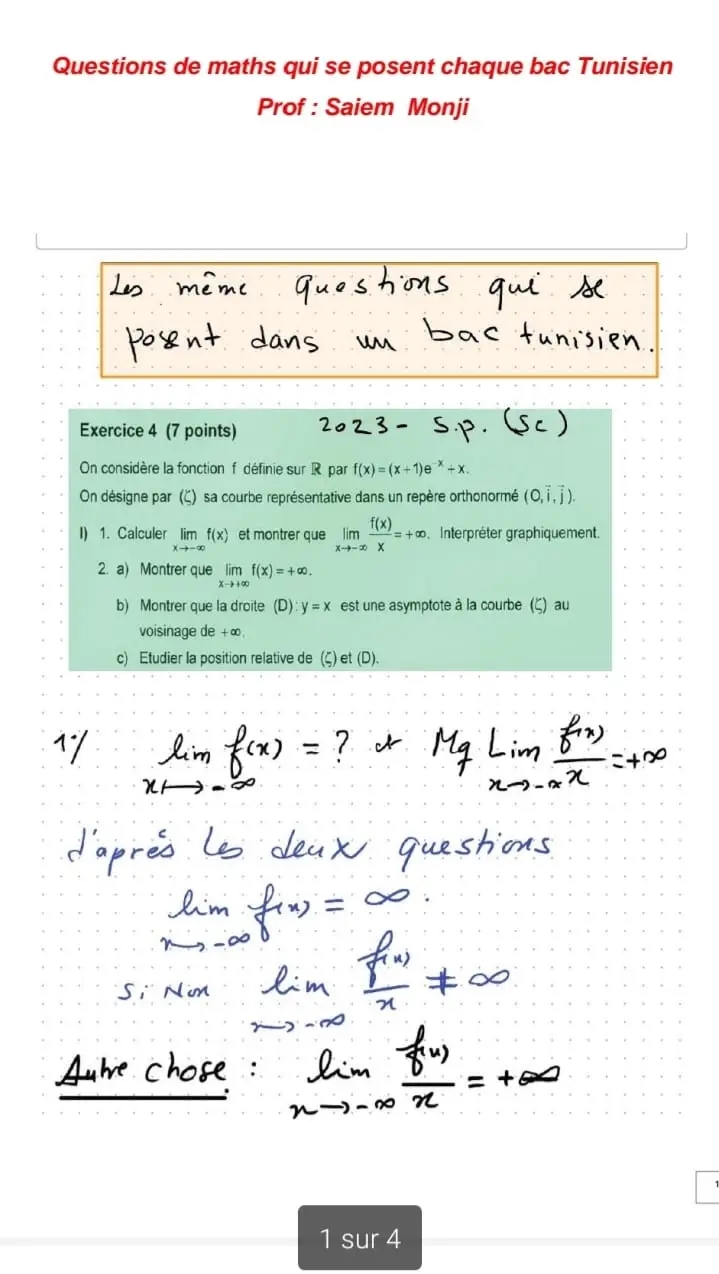 Questions de maths qui se posent chaque bac Tunisien
Prof : Saiem Monji
Les même questions qui se
posent dans un bac tunisien.
Exercice 4 (7 points) 2023 - S.p. (Sc)
On considère la fonction f définie sur ℝ par f(x) = (x+1)e⁻ˣ + x.
On désigne par (ζ) sa courbe représentative dans un repère orthonormé (O, i⃗, j⃗).
I) 1. Calculer lim x→-∞ f(x) et montrer que lim x→-∞ f(x)/x = +∞. Interpréter graphiquement.
2. a) Montrer que lim x→+∞ f(x) = +∞.
b) Montrer que la droite (D) : y = x est une asymptote à la courbe (ζ) au
voisinage de +∞.
c) Etudier la position relative de (ζ) et (D).
1°/ lim x↦-∞ f(x) = ? et Mq Lim x→-∞ f(x)/x = +∞
d'aprés les deux questions
lim x→-∞ f(x) = ∞.
Si Non lim x→-∞ f(x)/x ≠ ∞
Autre chose : lim x→-∞ f(x)/x = +∞
1
1 sur 4